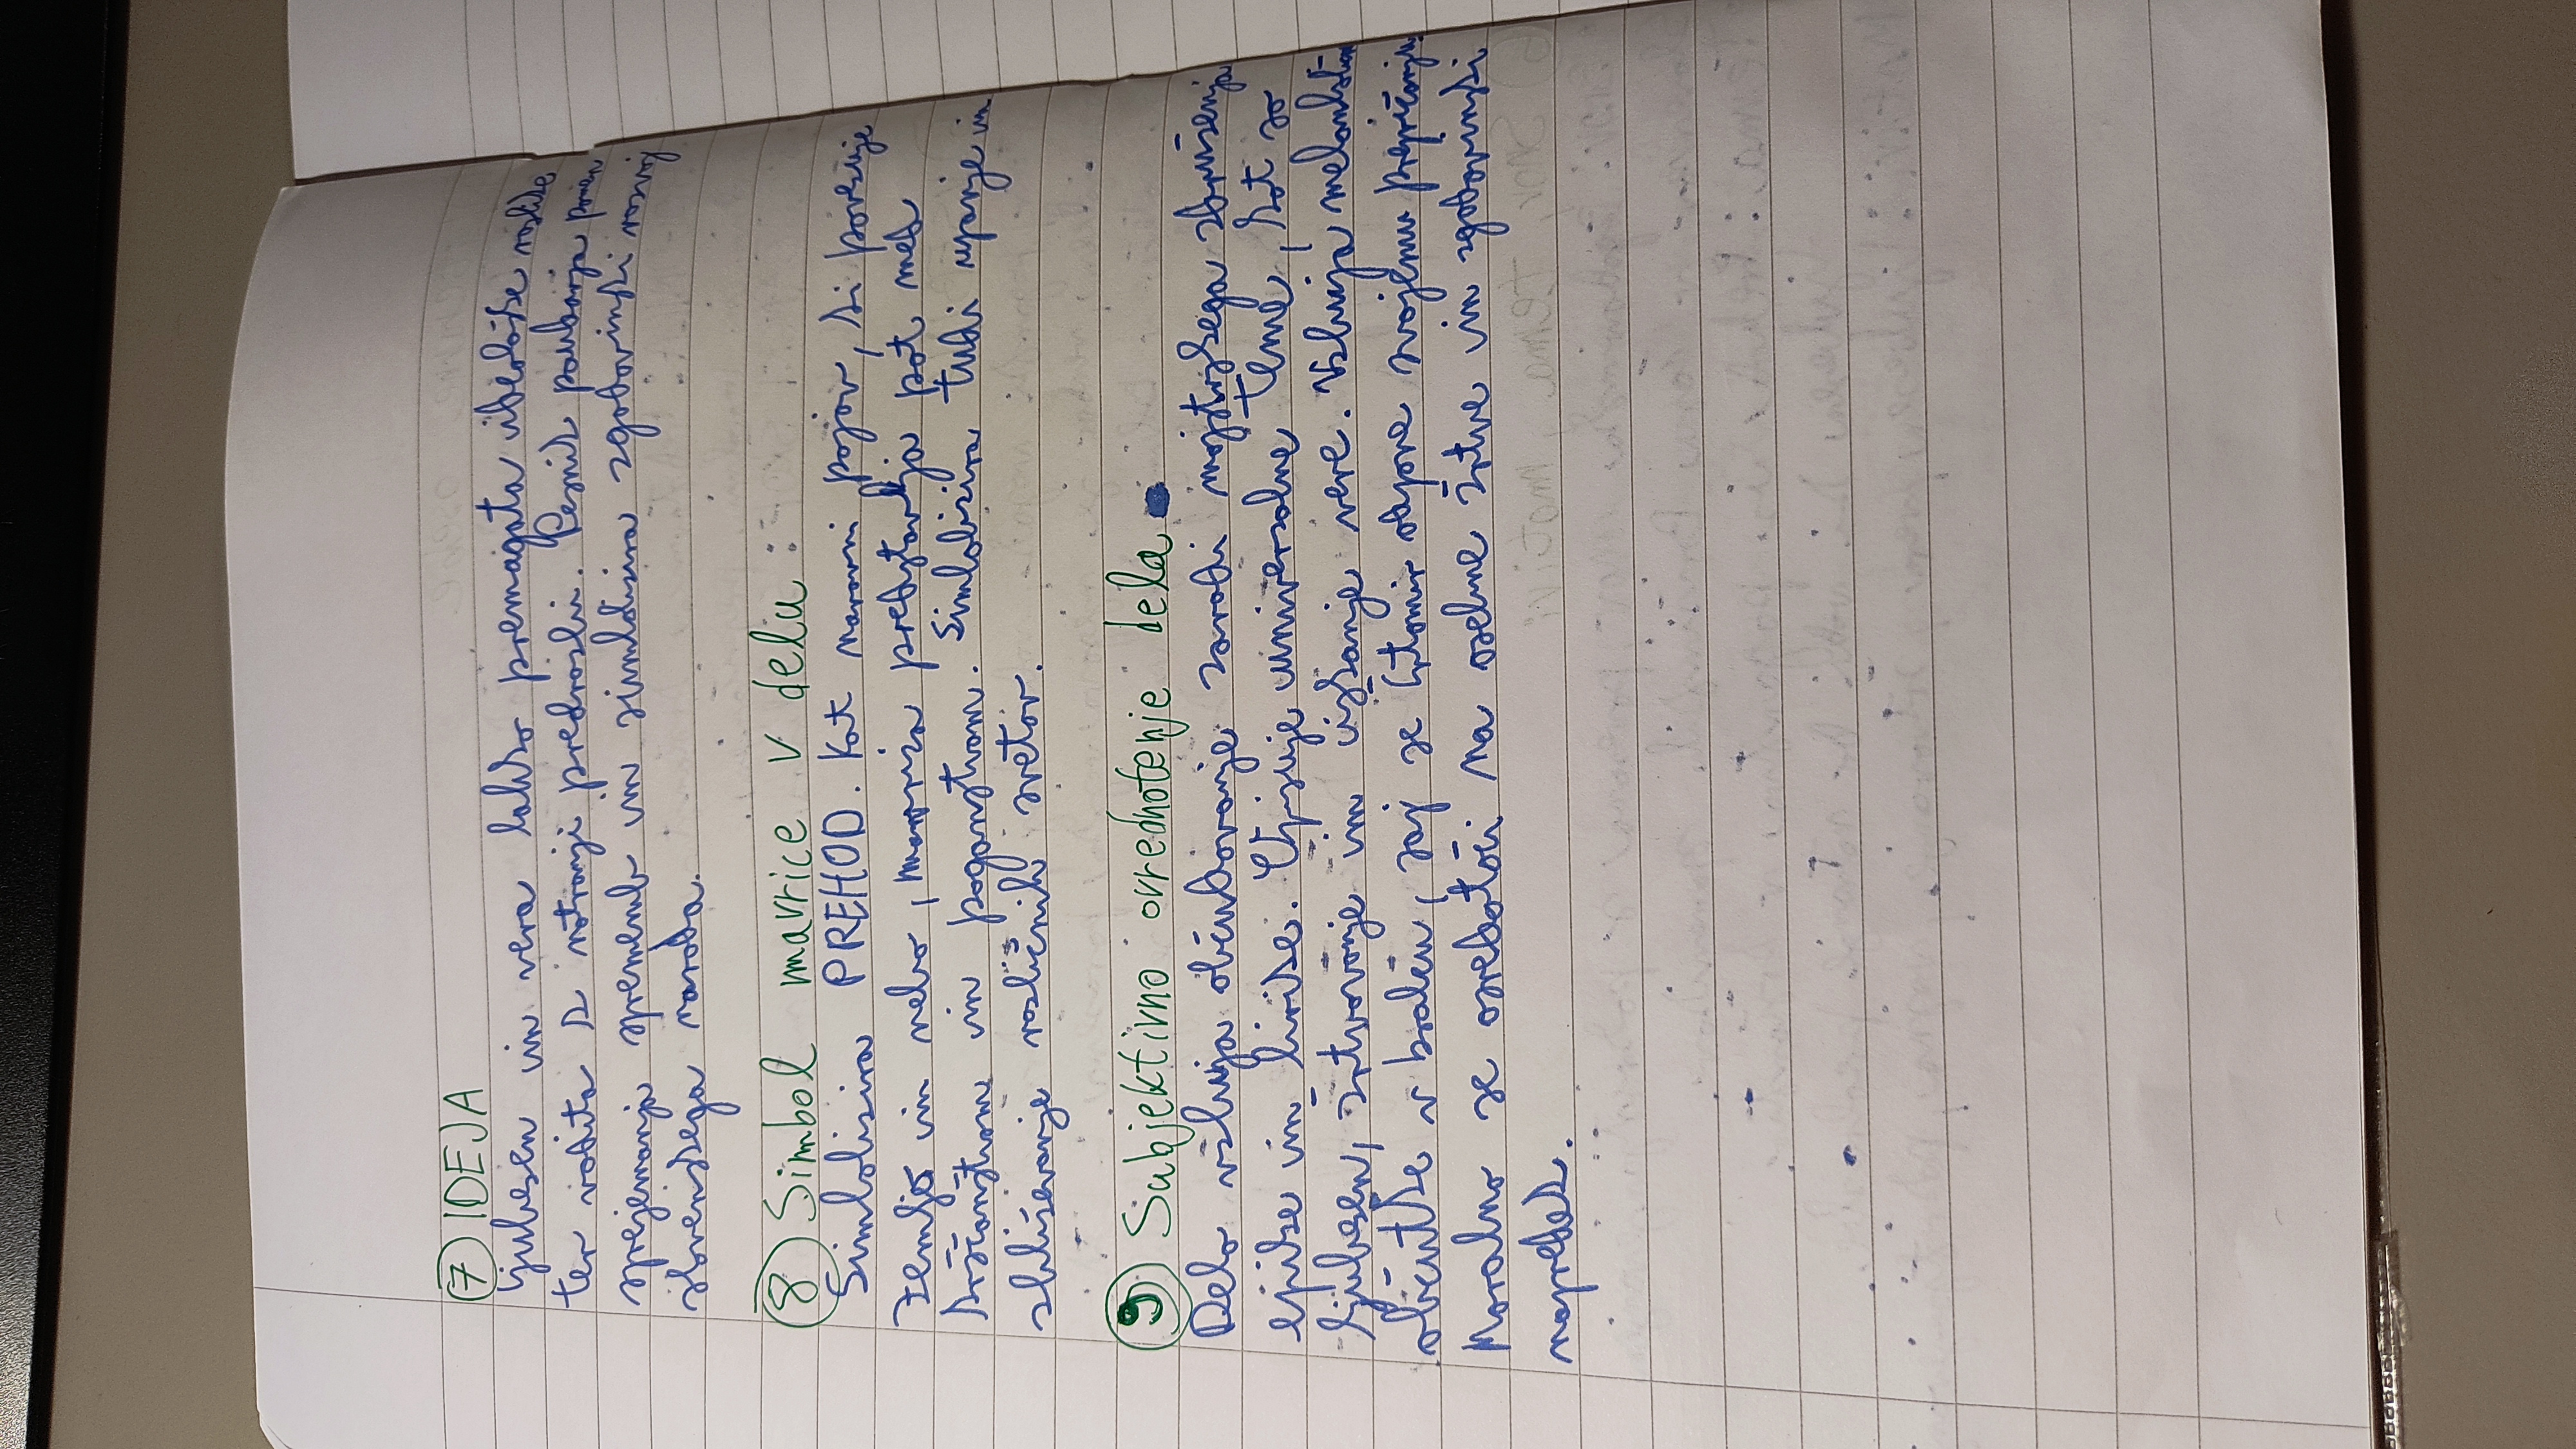 7 IDEJA
Ljubezen in vera lahko premagata ideološke razlike
ter vodita k notranji preobrazbi. Pesnik poudarja pomen
sprejemanja sprememb in simbolizira zgodovinski razvoj
slovenskega naroda.
8 Simbol mavrice v delu :
Simbolizira PREHOD. Kot naravni pojav, ki povezuje
zemljo in nebo, mavrica predstavlja pot med
krščanstvom in poganstvom. Simbolizira tudi upanje in
zbliževanje različnih svetov.
9 Subjektivno ovrednotenje dela
Delo vzbuja občudovanje zaradi mojstrskega združenja
epike in lirike. Opisuje univerzalne teme, kot so
ljubezen, žrtvovanje in iskanje vere. Vzbuja
občutke v bralcu, saj se Črtomir odpove svojemu prepričanju.
Moralno se osredotoči na osebne žrtve in zgodovinski
napredek.